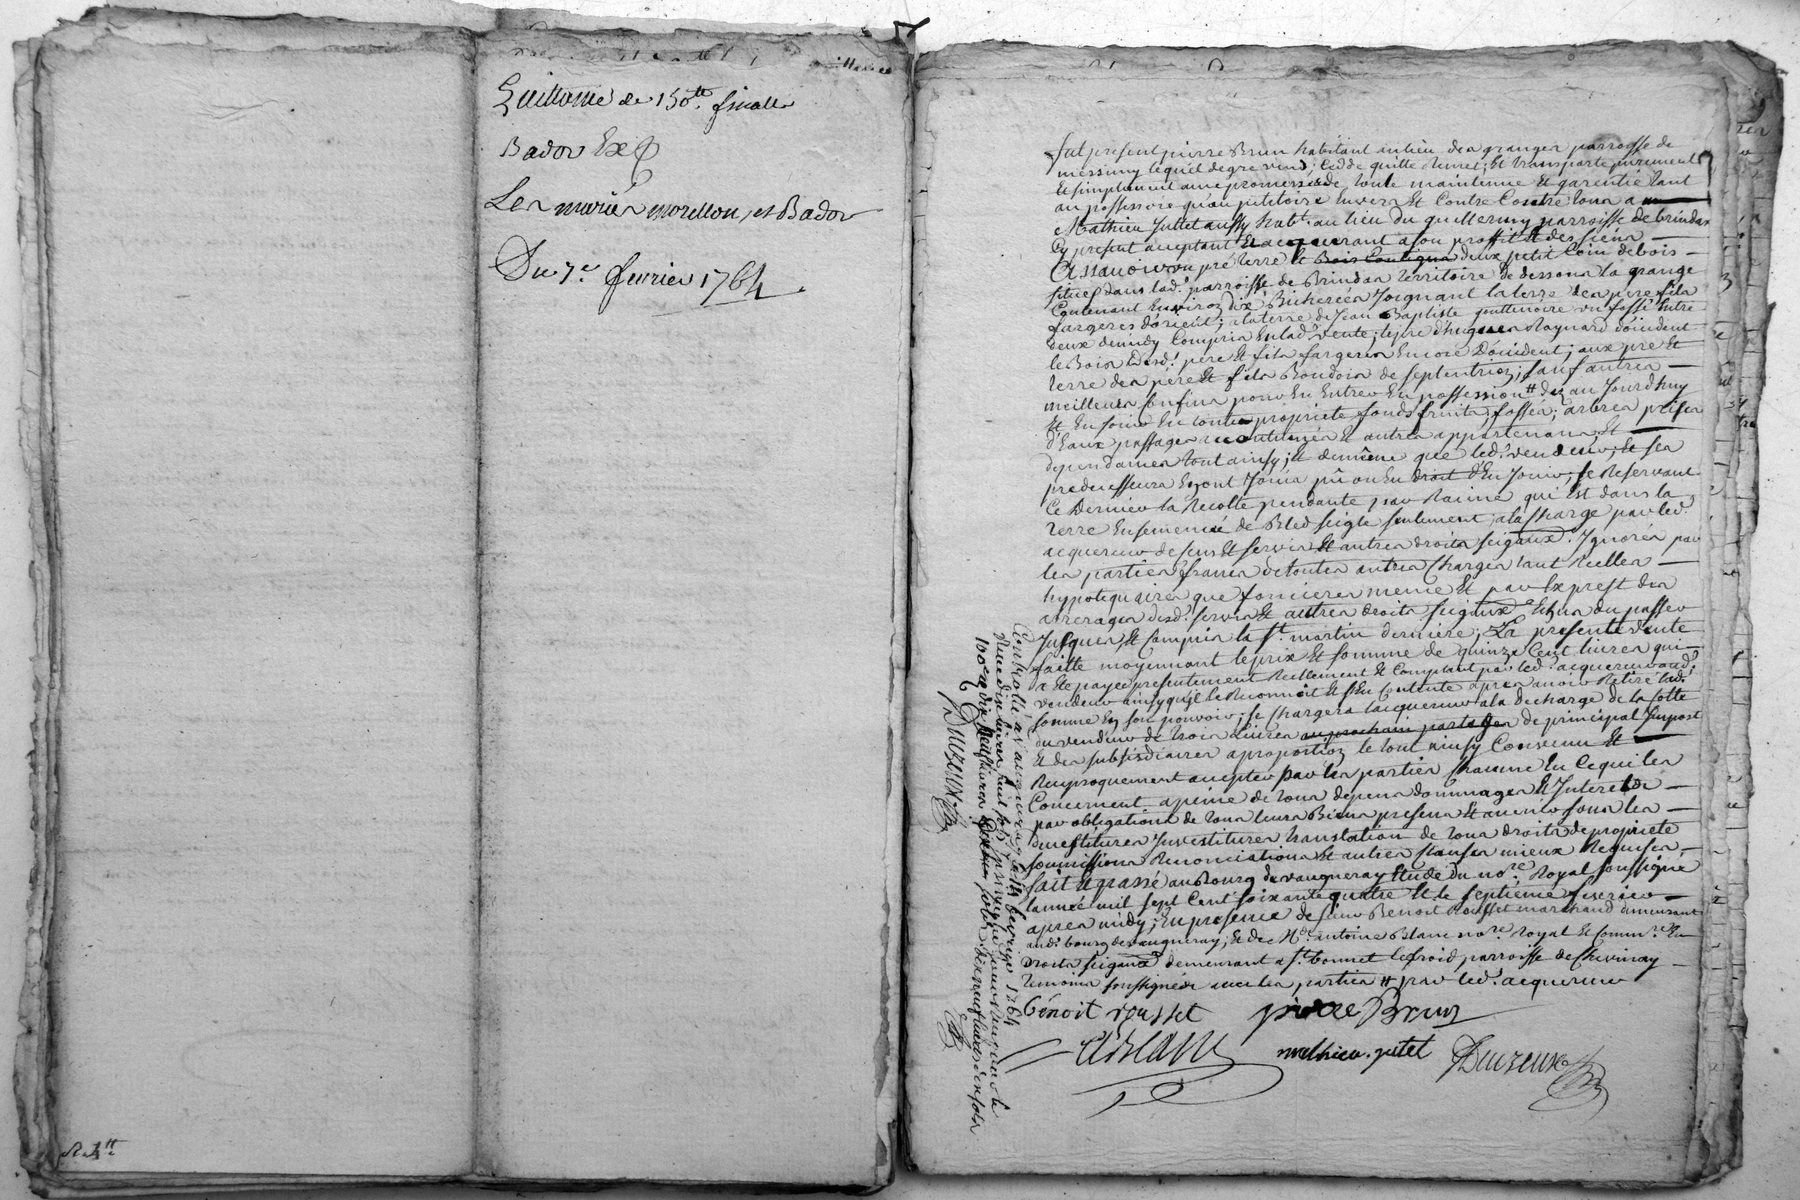 Quittance de 150ᵗᵗ finalle
Bador Exp
Les mariés morellon, et Bador
Du 7ᵉ fevrier 1764
R 1ᵗᵗ
fut present pierre Brun habitant au lieu des granges parroisse de
messimy lequel de gré vend, cedde quitte remet, et transporte purement
et simplement avec promesse de toute maintenue et garentie tant
au possessoire qu'au petitoire envers et contre tous a
Mathieu Jultet aussy habt. au lieu du guillermy parroisse de brindas
cy present acceptant et acquerant a son proffit et des siens
Assavoir un pré terre et bois contigus deux petit coin de bois
situés dans lad. parroisse de Brindas territoire de dessous la grange
contenant environ dix Bicherées Joignant la terre des pere et fils
fargeres d'orient; la terre de Jean Baptiste gouttenoire un fossé entre
deux de midy compris en lad. vente; le pré d'hugues Raynard d'occident
le Bois desd. pere et fils fargeres encore d'occident; aux pré et
terre des pere et fils Boudois de septentrion; sauf autres
meilleurs confins pour en entrer en possession # dez au Jourd'huy
et en jouir en toutte proprieté fonds fruits, fossés, arbres prises
d'Eaux passages accoutumés et autres appartenances et
dependances tout ainsy, et de même que led. vendeur, et ses
predecesseurs en ont Jouis pû ou eu droit d'en Jouir, se reservant
ce dernier la recolte pendante par racine qui est dans la
terre ensemencée de Bled seigle seulement, a la charge par led.
acquereur de sens et servis et autres droits seigaux. Ignorés par
les parties francs de toutes autres charges tant reelles
hypotequaires que foncieres meme et par exprest des
arrerages desd. servis et autres droits seigaux echus du passer
Jusques et compris la st. martin derniere; La presente vente
faitte moyennant le prix et somme de quinze cent livres qui
a eté payée presentement reellement et comptant par led. acquereur aud.
vendeur ainsy qu'il le reconnoit et s'en contente apres avoir retiré lad.
somme en son pouvoir; se chargera l'acquereur a la decharge de la cotte
du vendeur de trois livres au prochain partages de principal Impost
et des subsidiaires a proportion le tout ainsy convenu et
reciproquement accepter par les parties chacune en ce qui les
concernent a peine de tous depens dommages et Interests
par obligations de tous leurs Biens presens et avenir sous les
devestitures Investitures translation de tous droits de proprieté
soumissions renonciations et autres clauses mieux requises
fait et passé au Bourg de vaugneray Etude du nore. Royal soussigné
l'année mil sept cent soixante quatre et le septieme fevrier
apres midy; En presence de sieur Benoit Rousset marchand demeurant
aud. bourg de vaugneray, et de Me. antoine Blanc nore. royal et commre. en
droits seigaux demeurant a st. bonnet le froid parroisse de Chevinay
temoins soussignés avec les parties # par led. acquereur
Bênoit rousset pierre Brun
ABlanc mathieu jutet Duvzeux
Controllé a vaugneray le 14 fevrier 1764
Duvzeux